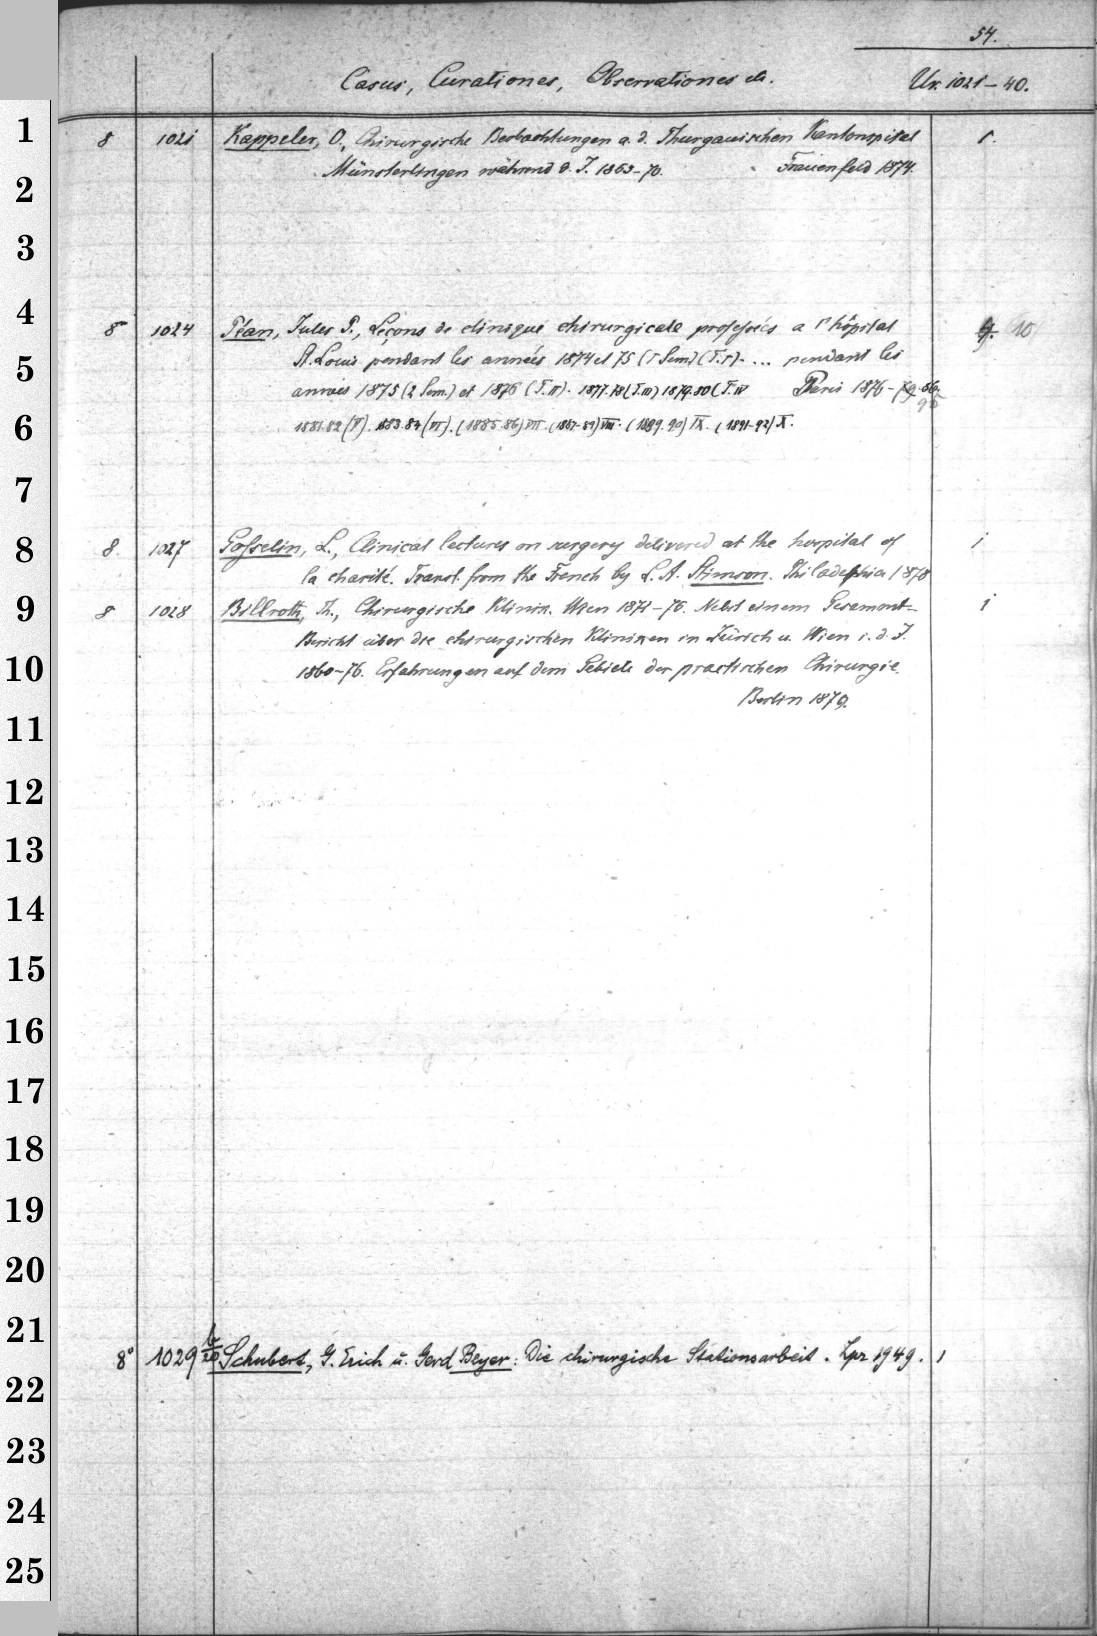 54.
Casus, Curationes, Observationes etc. Nr. 1021-40.
1
8 1021 Kappeler, O., Chirurgische Beobachtungen a. d. Thurgauischen Kantonspital 1.
Münsterlingen während d. J. 1863-70. Frauenfeld 1874.
2
3
4
8° 1024 Péan, Jules P., Leçons de clinique chirurgicale professées a l'hôpital 10
St. Louis pendant les années 1874 et 75 (1 Sem.) (T. I). ... pendant les
5
années 1875 (2 Sem.) et 1876 (T. II). 1877.78 (T. III) 1879.80 (T. IV Paris 1876-79. 86.
95
6
1881.82 (V). 1883.84 (VI). (1885-86) VII. (1887-89) VIII. (1889.90) IX. (1891-92) X.
7
8
8. 1027 Gosselin, L., Clinical lectures on surgery delivered at the hospital of 1
la charité. Transl. from the French by L. A. Stimson. Philadephia 1878
9
8 1028 Billroth, Th., Chirurgische Klinik. Wien 1871-76. Nebst einem Gesammt- 1
Bericht über die chirurgischen Kliniken in Zürich u. Wien i. d. J.
10
1860-76. Erfahrungen auf dem Gebiete der practischen Chirurgie.
Berlin 1879.
11
12
13
14
15
16
17
18
19
20
21
8° 1029 b/20 Schubert, G. Erich u. Gerd Beyer: Die chirurgische Stationsarbeit. Lpz 1949. 1
22
23
24
25